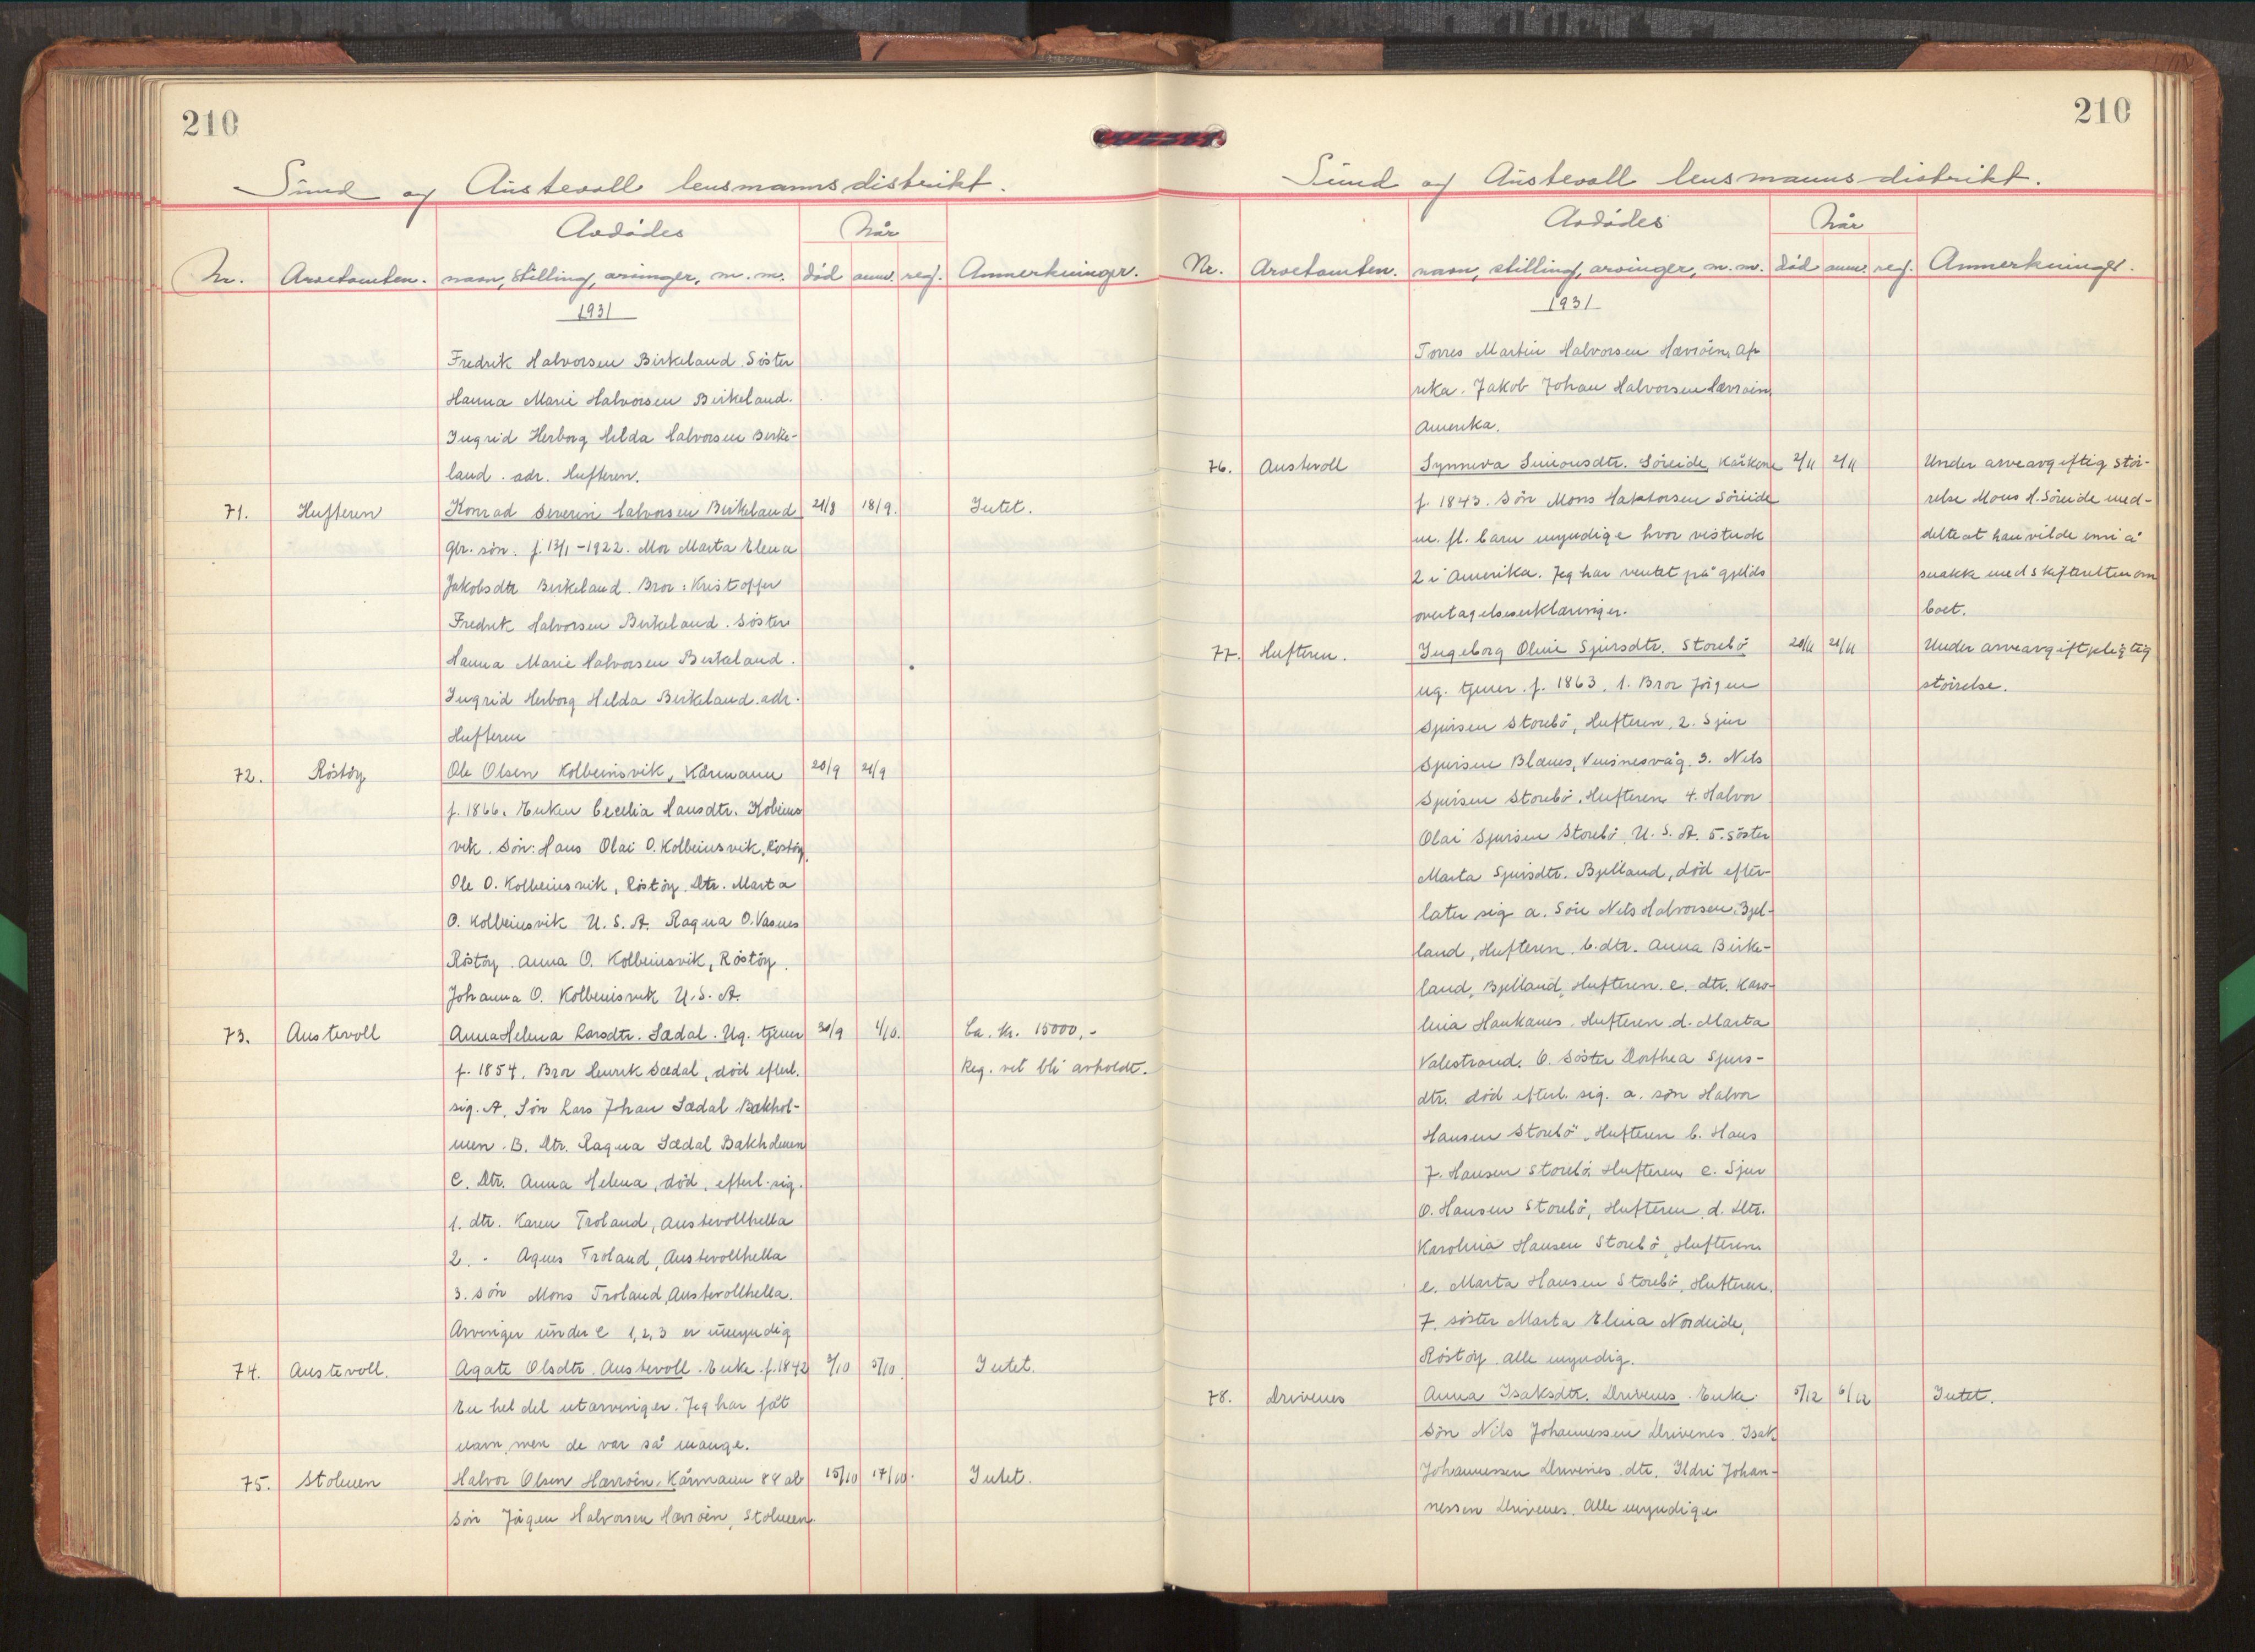 210
Sund og Austevoll lensmannsdistrikt.
Avdödes
Når
Nr. Avdetomten. navn, stilling, arvinger, m. m. död anm. reg. Anmerkninger.
1931
Fredrik Halvorsen Birkeland. Söster
Hanna Marie Halvorsen Birkeland.
Ingrid Herborg Hilda Halvorsen Birke-
land. adr. Hufteren.
71. Hufteren Konrad Severin Halvorsen Birkeland 21/8 18/9. Intet.
Gbr. sön. f. 13/1-1922. Mor Marta Elena
Jakobsdtr Birkeland. Bror: Kristoffer
Fredrik Halvorsen Birkeland. Söster
Hanna Marie Halvorsen Birkeland.
Ingrid Herborg Hilda Birkeland. adr.
Hufteren
72. Röstöy Ole Olsen Kolbeinsvik, Kårmann 20/9 21/9
f. 1866. Enken Cecelia Hansdtr. Kobeins
vik. Sön: Hans Olai O. Kolbeinsvik, Röstöy,
Ole O. Kolbeinsvik, Röstöy. Dtr. Marta
O. Kolbeinsvik U. S. A. Ragna O. Vasnes
Röstöy. Anna O. Kolbeinsvik, Röstöy.
Johanna O. Kolbeinsvik U. S. A.
73. Austevoll Anna Helena Larsdtr. Sædal. Ug. tjener 30/9 1/10. Ca. kr. 15000,-
f. 1854. Bror Henrik Sædal, död efterl. Reg. vil bli avholdt.
sig. A. Sön Lars Johan Sædal Bakhol-
men. B. Dtr. Ragna Sædal Bakholmen
C. Dtr. Anna Helena, död, efterl. sig.
1. dtr. Karen Troland, Austevollhella
2. - Agnes Troland, Austevollhella
3. sön Mons Troland, Austevollhella.
Arvinger under C 1, 2, 3 er umyndig
74. Austevoll. Agate Olsdtr. Austevoll. Enke. f. 1842 3/10 5/10. Intet.
En hel del utarvinger. Jeg har fåt
navn, men de var så mange.
75. Stolmen Halvor Olsen Hævröin. Kårmann 88 år 15/10 17/10. Intet.
Sön Jörgen Halvorsen Hævröin, Stolmen.
210
Sund og Austevoll lensmannsdistrikt.
Avdödes
Når
Nr. Avdetomten. navn, stilling, arvinger, m. m. död anm. reg. Anmerkninger.
1931
Torres Martin Halvorsen Hævröin, Af
rika. Jakob Johan Halvorsen Hævröin,
Amerika.
76. Austevoll Synneva Simonsdtr. Söreide, Kårkone 2/11 2/11 Under arveavgiftig stör-
f. 1843. Sön Mons Haktorsen Söreide relse Mons H. Söreide med-
m. fl. barn myndige hvor vistnok delte at han vilde inn å
2 i Amerika. Jeg har ventet på gjelds snakk med skifteretten om
overtagelseserklæringer. boet.
77. Hufteren. Ingeborg Oline Sjursdtr. Storebö 20/11 21/11 Under arveavgiftpliktig
ug. tjener. f. 1863. 1. Bror Jörgen störrelse.
Sjursen Storebö, Hufteren, 2. Sjur
Sjursen Blænes, Vinnesvåg. 3. Nils
Sjursen Storebö, Hufteren 4. Halvor
Olai Sjursen Storebö, U. S. A. 5. söster
Marta Sjursdtr. Bjelland, död efter-
later sig a. Sön Nils Halvorsen Bjel-
land, Hufteren. b. dtr. Anna Birke-
land, Bjelland, Hufteren. c. dtr. Karo-
lina Haukanes, Hufteren d. Marta
Valestrand. 6. söster Dorthea Sjurs-
dtr. död efterl. sig. a. sön Halvor
Hansen Storebö, Hufteren b. Hans
J. Hansen Storebö, Hufteren, c. Sjur
O. Hansen Storebö, Hufteren, d. dtr.
Karolina Hansen Storebö, Hufteren
e. Marta Hansen Storebö, Hufteren.
7. söster Marta Elina Nordeide,
Röstöy. alle myndig.
78. Drivenes Anna Isaksdtr. Drivenes. Enke. 5/12 6/12 Intet.
Sön Nils Johannessen Drivenes. Isak
Johannessen Drivenes. dtr. Ildri Johan-
nessen Drivenes. Alle myndige